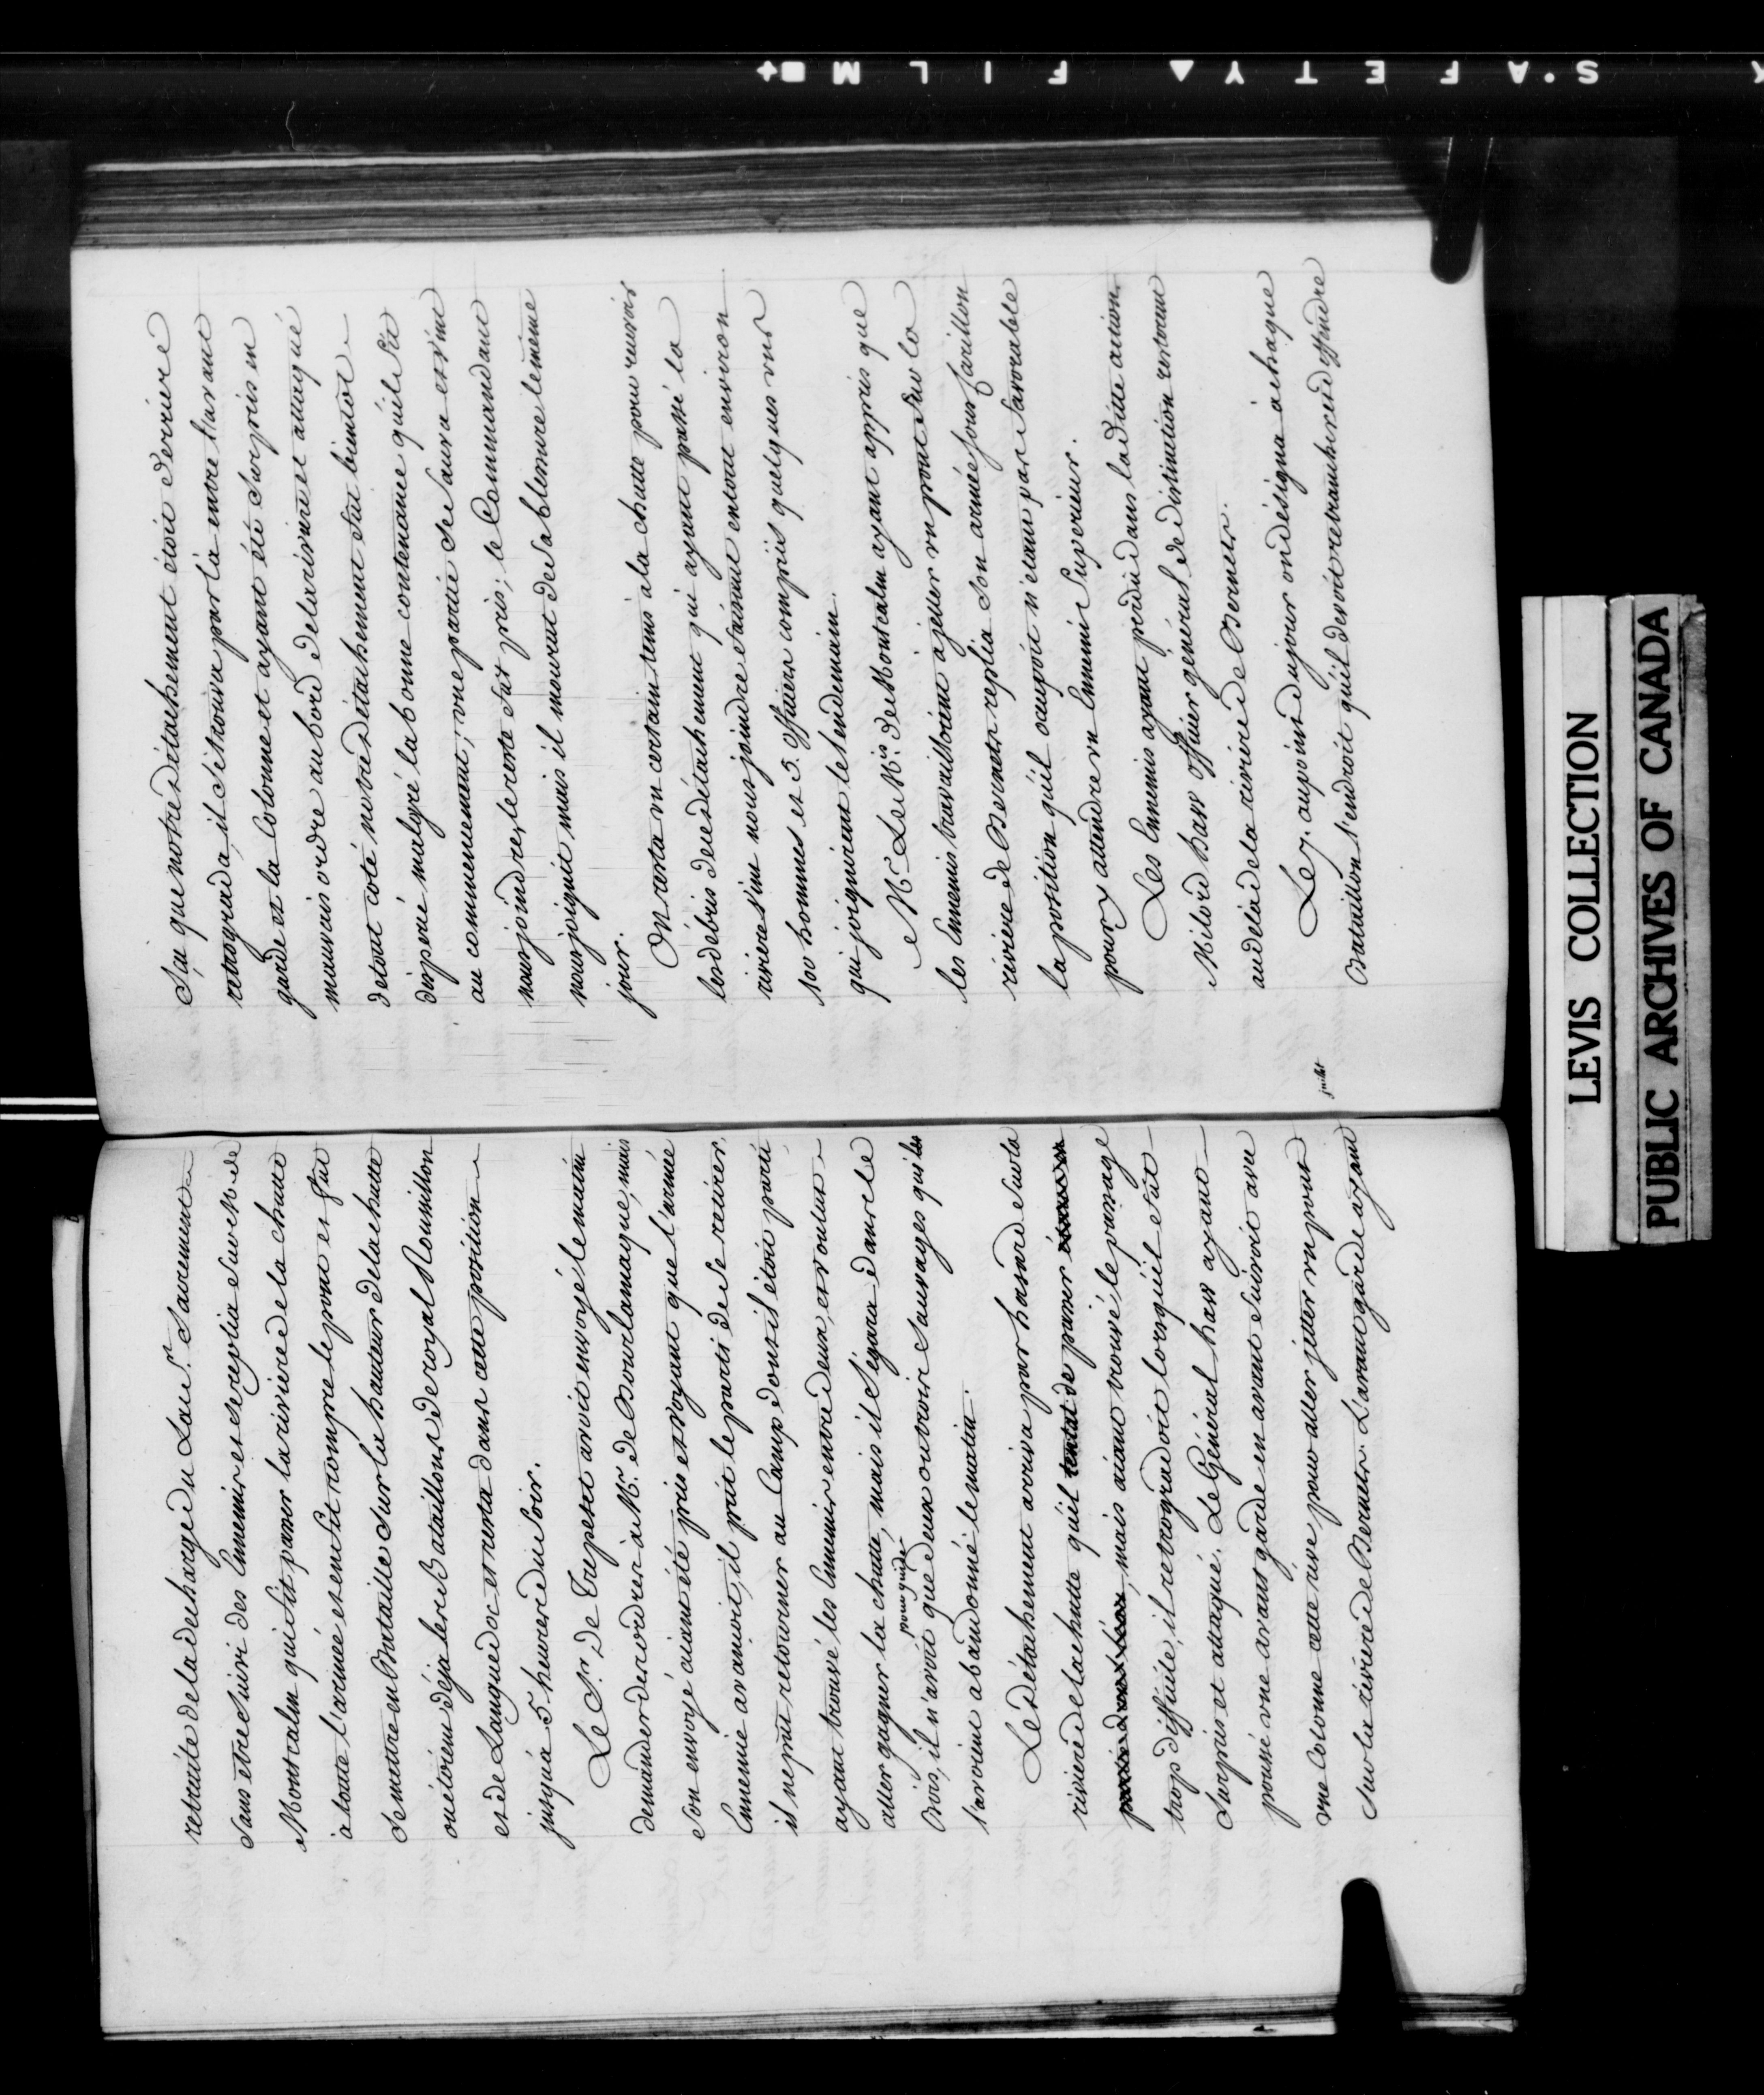 retraite de la decharge du Lac St. Sacrement
Sans etre Suivi des Ennemis et se replia Sur M. de
Montcalm qui fit passer la riviere de la chutte
à toutte l'armée et en fit rompre le pont et fut
Se mettre en Bataille Sur les hauteurs de la chutte
ou étoient déja les Bataillons de royal Roussillon
et de Languedoc et resta dans cette position
jusqu'a 5 heures du Soir.
Le Sr. De Trepesec avoit envoyé le matin
demander des ordres à Mr. de Bourlamaque, mais
Son envoyé aiant été pris et voyant que l'armée
Ennemie avançoit, il prit le parti de Se retirer,
il ne put retourner au Camp dont il étoit parti
ayant trouvé les Ennemis entre deux, et voulut
aller gagner la chutte, mais il S'égara dans le
pour guide
Bois, il n'avoit que deux ou trois Sauvages qui les
l'avoient abandonné le matin.
Le détachement arriva par hasard Sur la
riviere de la chutte qu'il tentat de passer
mais aiant trouvé le passage
trop difficile, il retrogradoit lorsqu'il fut
Surpris et attaqué. Le Général haw ayant
poussé une avant garde en avant Suivoit avec
une Colonne cette rive pour aller jetter un pont
Sur la riviere de Bernetz. L'avant garde ayant
Sçu que notre détachement étoit derriere
retrograda, il Se trouva par là entre l'avant
garde et la Colonne et ayant été Surpris en
mauvais ordre au bord de la riviere et attaqué
de tout coté notre détachement fut bientôt
dispersé malgré la bonne contenance qu'il fit
au commencement; une partie Se Sauva et vint
nous joindre, le reste fut pris; le Commandant
nous joignit mais il mourut de Sa blessure le même
jour.
On resta un certain tems à la chutte pour recevoir
les débris de ce détachement qui ayant passé la
riviere vint nous joindre faisant en tout environ
100 hommes et 3. officiers compris quelques uns
qui joignirent le lendemain.
Mr. Le Mis. de Montcalm ayant appris que
les Ennemis travailloient à jetter un pont Sur la
riviere de Bernetz replia Son armée Sous Carillon
la position qu'il occupoit n'étant pas favorable
pour y attendre un Ennemi Superieur.
Les Ennemis ayant perdu dans la ditte action
Milord haw officier général de distinction resterent
au delà de la riviere de Bernetz.
juillet
Le 7. au point du jour on désigna à chaque
Bataillon l'endroit qu'il devoit retrancher et deffendre
LEVIS COLLECTION
PUBLIC ARCHIVES OF CANADA
SAFETY FILM